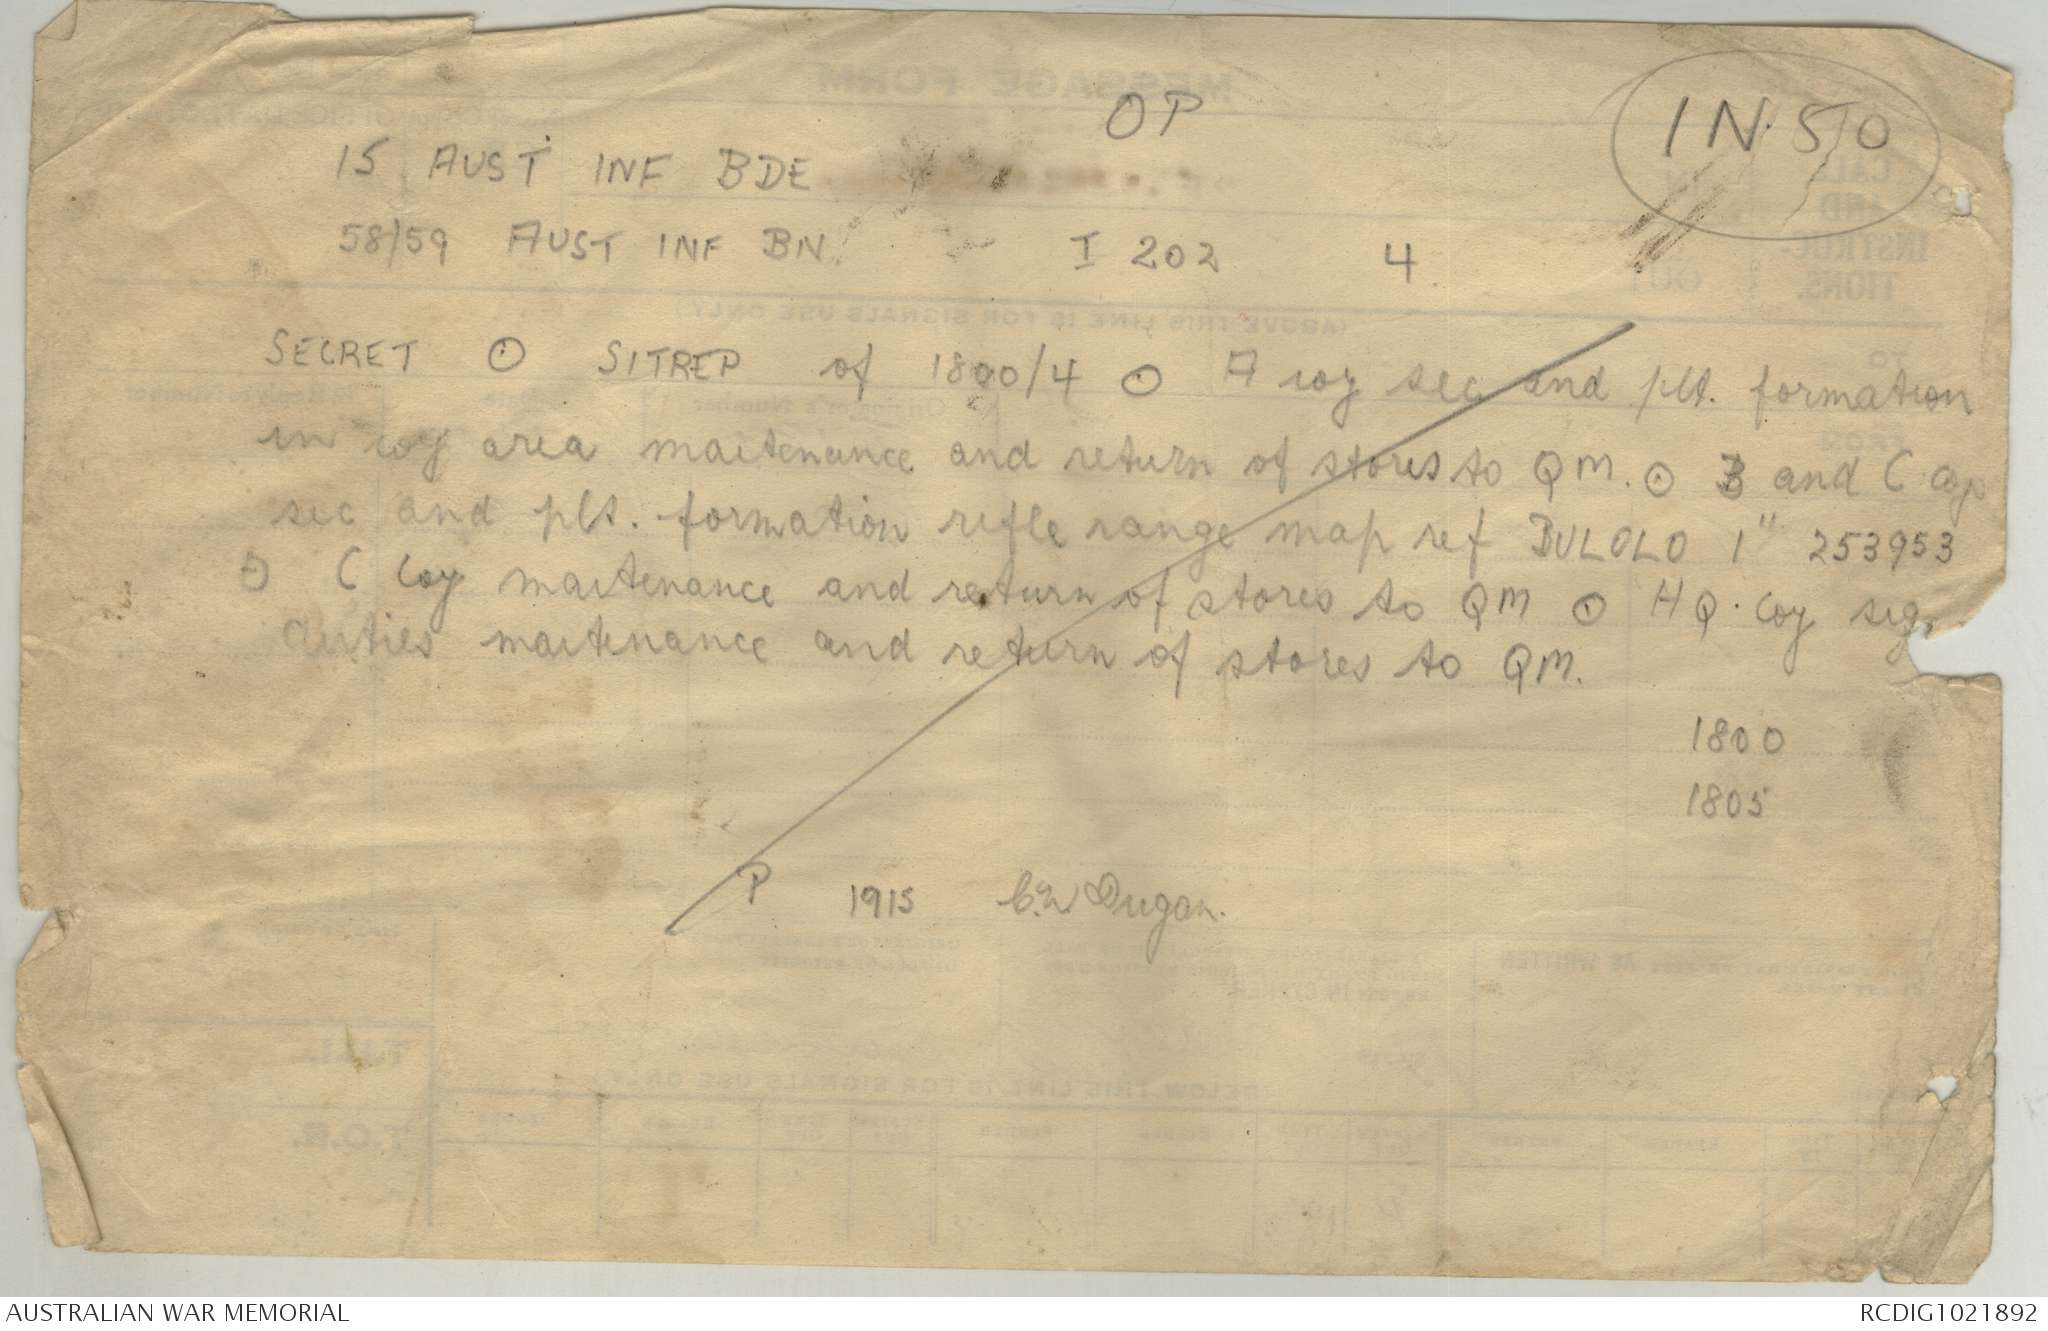 OP
IN 50
15 AUST INF BDE
58/59 AUST INF BN. I 202 4
SECRET ⊙ SITREP of 1800/4 ⊙ A coy sec and plt. formation
in coy area maitenance and return of stores to QM. ⊙ B and C coy
sec and plt. formation rifle range map ref BULOLO 1" 253953
⊙ C Coy maitenance and return of stores to QM ⊙ HQ. Coy sig.
duties maitenance and return of stores to QM.
1800
1805
P 1915 Dugan.
AUSTRALIAN WAR MEMORIAL
RCDIG1021892